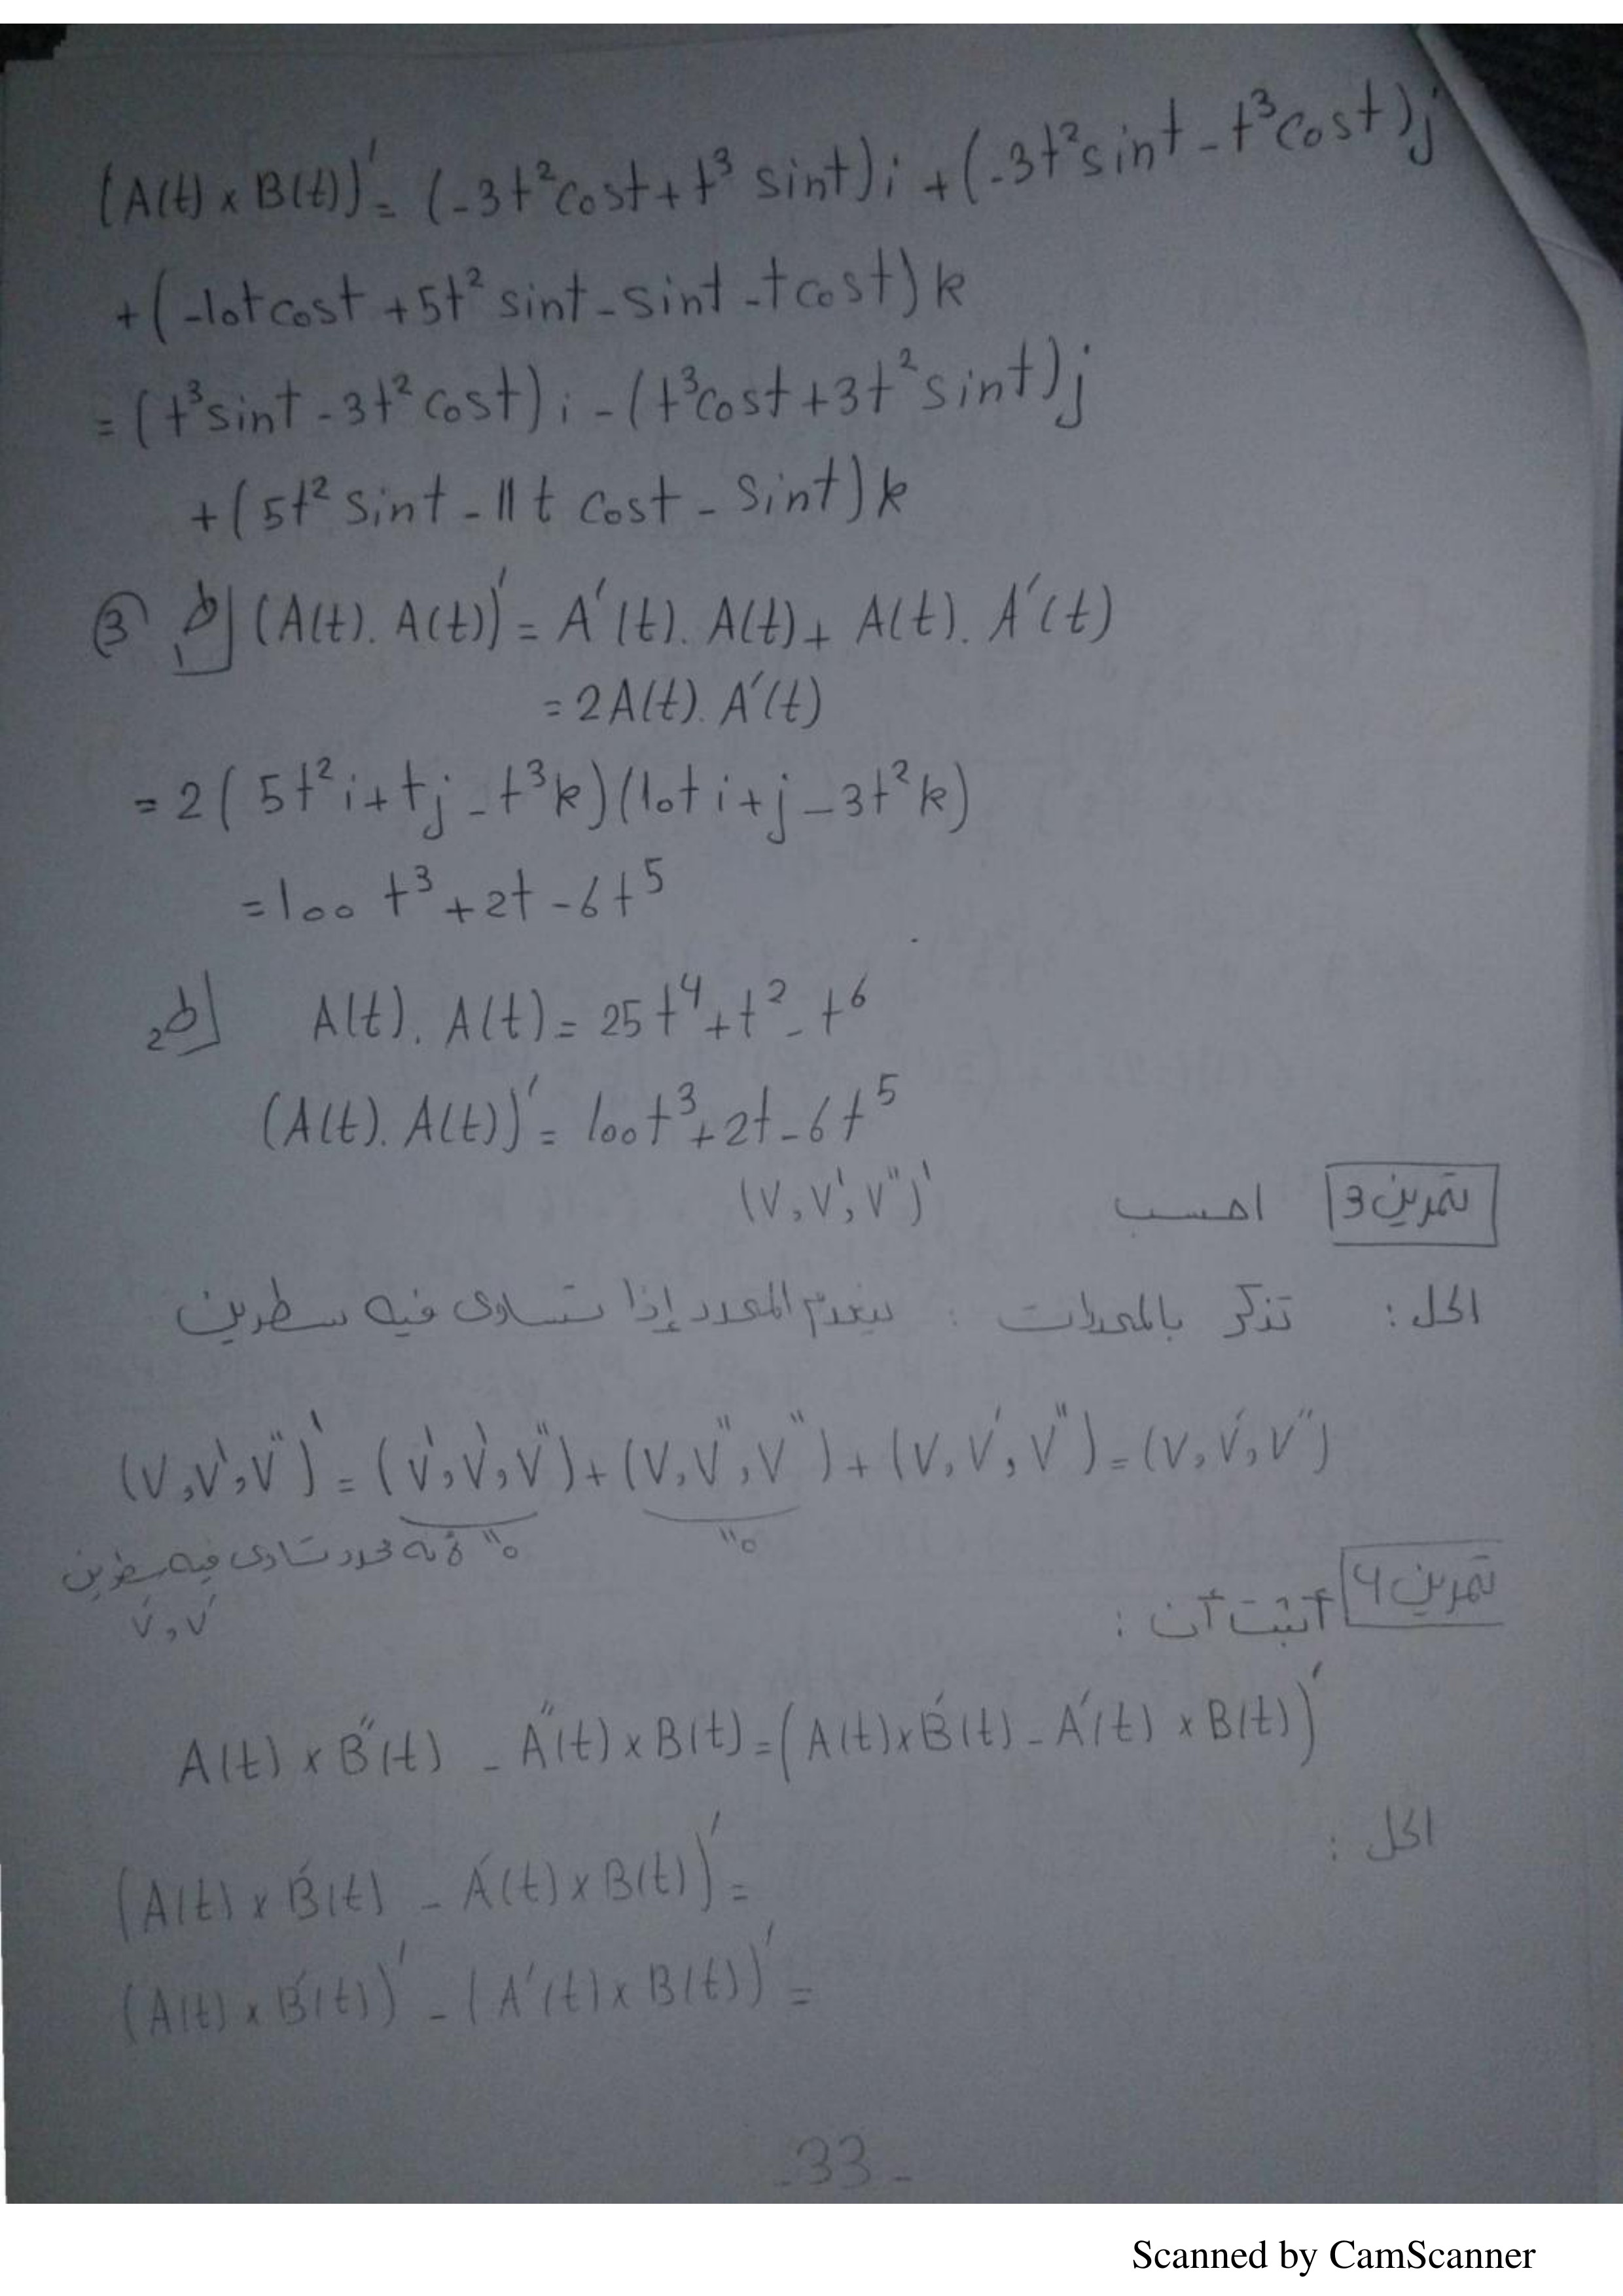 (A(t) × B(t))' = (-3t²cost + t³ sint)i + (-3t²sint - t³cost)j
+ (-10t cost + 5t² sint - sint - t cost) k
= (t³sint - 3t² cost) i - (t³cost + 3t² sint) j
+ (5t² sint - 11 t cost - sint) k
③ ط1 (A(t). A(t))' = A'(t). A(t) + A(t). A'(t)
= 2A(t). A'(t)
= 2( 5t²i + tj - t³k)(10t i + j - 3t²k)
= 100 t³ + 2t - 6t⁵
ط2 A(t). A(t) = 25t⁴ + t² - t⁶
(A(t). A(t))' = 100t³ + 2t - 6t⁵
تمرين 3 احسب (V, V', V'')'
الحل : تذكر بالمحددات : ينعدم المحدد إذا تساوى فيه سطرين
(V, V', V'')' = (V', V', V'') + (V, V'', V'') + (V, V', V'') = (V, V', V'')
"0 لأنه محدد تساوى فيه سطرين "0
V', V'
تمرين 4 أثبت أن :
A(t) × B''(t) - A''(t) × B(t) = (A(t) × B'(t) - A'(t) × B(t))'
الحل :
(A(t) × B'(t) - A'(t) × B(t))' =
(A(t) × B'(t))' - (A'(t) × B(t))' =
- 33 -
Scanned by CamScanner